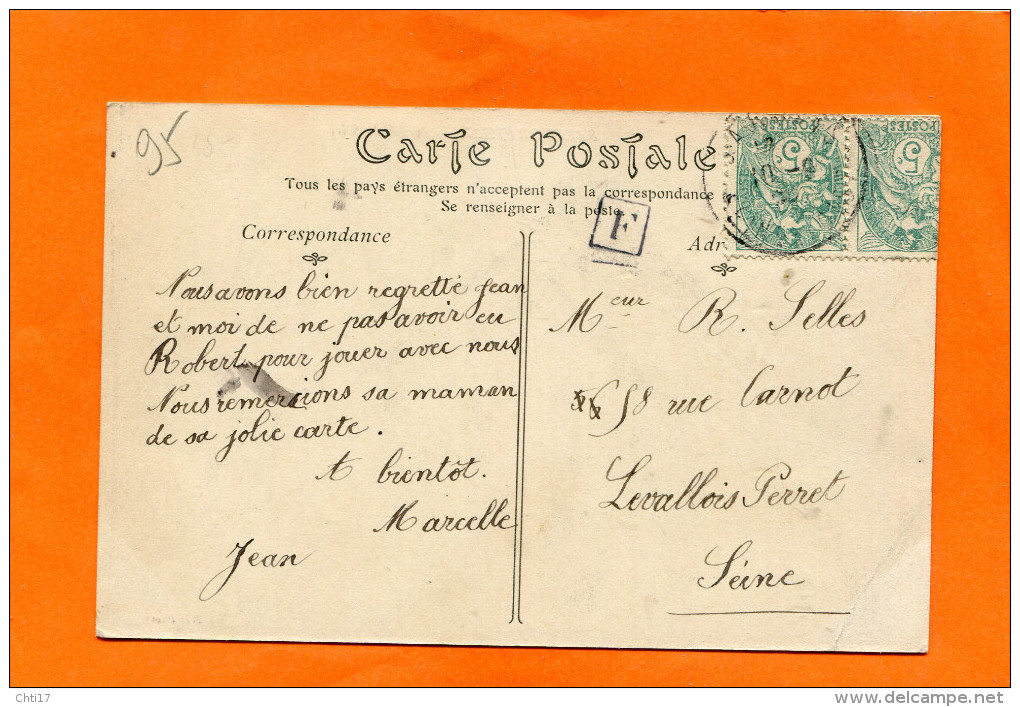 95
Carte Postale
Tous les pays étrangers n'acceptent pas la correspondance
Se renseigner à la poste
F
POSTES
5
POSTES
5
Correspondance
Adr
Nous avons bien regretté Jean
et moi de ne pas avoir eu
Robert pour jouer avec nous
Nous remercions sa maman
de sa jolie carte.
A bientôt.
Marcelle
Jean
Meur R. Selles
58 rue Carnot
Levallois Perret
Seine
Chti17
delcampe.net